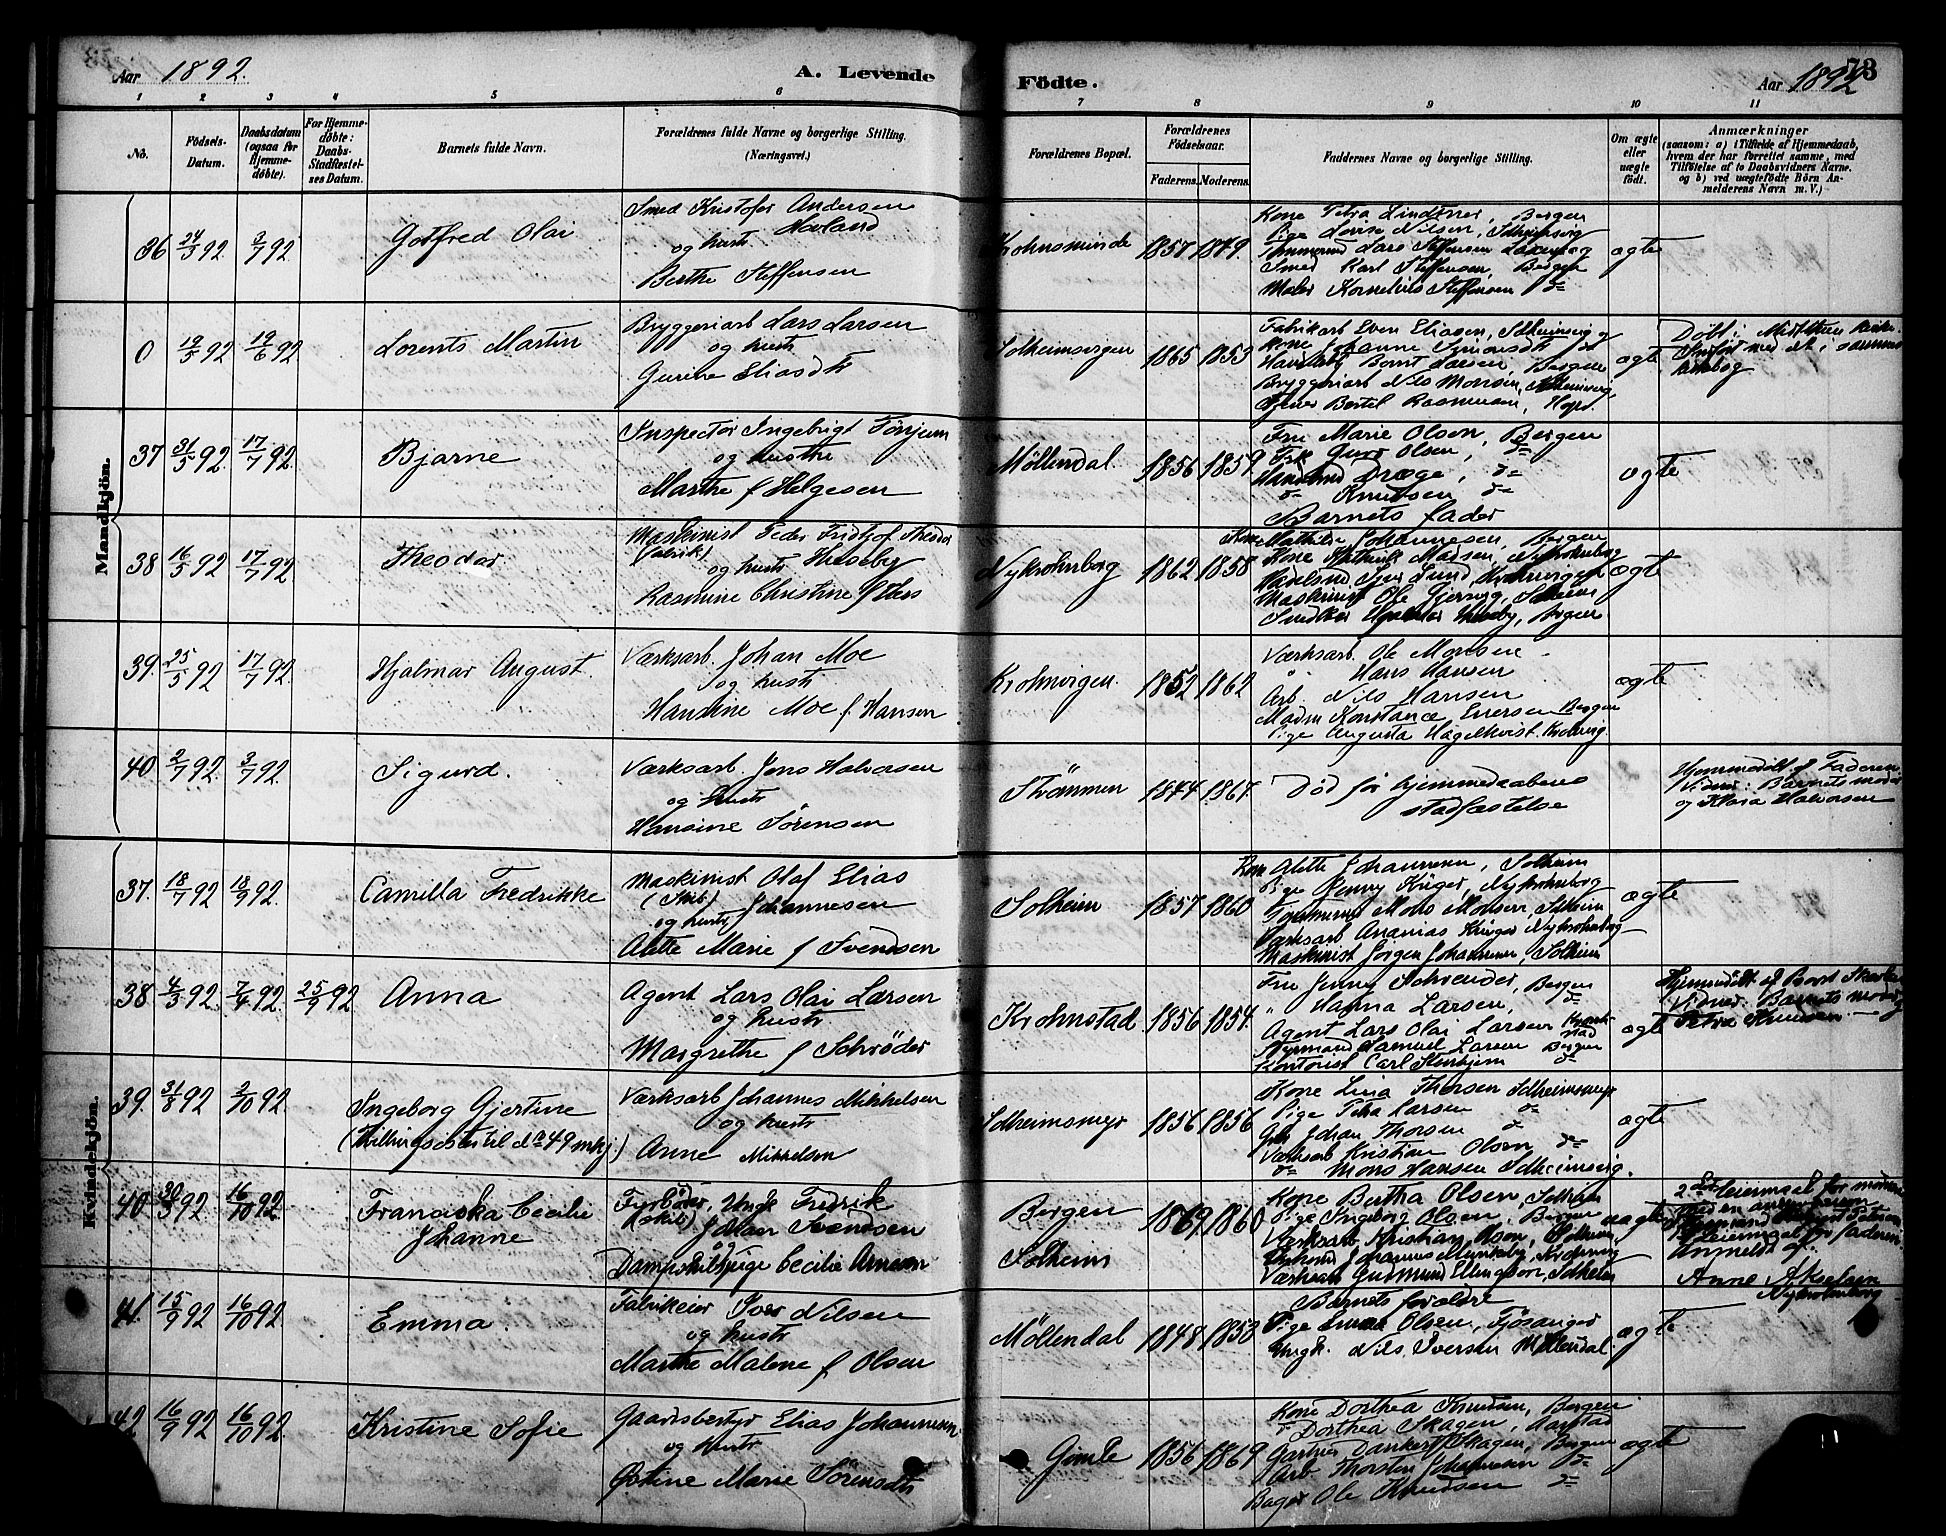 Aar 1892.
A. Levende
Födte.
Aar 1892
73
1 2 3 4 5 6 7 8 9 10 11
No.
Födsels-Datum.
Daabsdatum (ogsaa for Hjemme-döbte).
For Hjemme-döbte: Daabs-Stadfestel-ses Datum.
Barnets fulde Navn.
Forældrenes fulde Navne og borgerlige Stilling. (Næringsvei.)
Forældrenes Bopæl.
Forældrenes Födselsaar.
Faderens. Moderens.
Faddernes Navne og borgerlige Stilling.
Om ægte eller uægte födt.
Anmærkninger
(saasom: a) i Tilfælde af Hjemmedaab, hvem der har forrettet samme, med Tilföielse af to Daabsvidners Navne. og b) ved uægtefödte Börn An-melderens Navn m. V.)
Mandkjön.
36 24/3 92. 3/7 92 Gotfred Olai
Smed Kristofer Andersen
og hustr Havland
Berthe Steffensen
Krohnsminde 1857 1849.
Kone Petra Lindtner, Bergen
Pige Lovise Nilsen, Solheimsvig
Tømmermd Lars Steffensen Laxevaag
Smed Karl Steffensen, Bergen
Maler Kornelius Steffensen do
ægte
0 19/5 92 19/6 92 Lorents Martin
Bryggeriarb Lars Larsen
og hustr
Gurine Eliasdtr
Solheimsvigen 1865 1853
Fabrikarb Even Eliasen, Solheimsvig
Kone Johanne Simonsdt do
Bernt Larsen, Bergen
Bryggeriarb Nils Monsen, Solheimsvig
Tjener Bertel Rasmussen, Hop.
ægte
Døbt i
37 31/5 92. 17/7 92. Bjarne
Inspectør Ingebrigt Tønjum
og hustru
Marthe f Helgesen
Møllendal. 1856 1859.
Fru Marie Olsen, Bergen
Frk Guro Olsen, do
Handelsmd Dræge, do
do Knudsen do
Barnets fader
ægte
38 16/5 92 17/7 92 Theodor
Maskinist Peder Fridthjof Theodor
(fabrik) og hustr Huseby
Rasmine Christine f Hess
Nykrohnborg 1862 1858
Kone Mathilde Johannesen, Bergen
Kone Madsen, Nykrohnborg
Lund, Krohnvigen
Maskinist Ole Gjervig, Solheim
Snedker Hjalmar Huseby, Bergen
ægte
39. 25/5 92 17/7 92. Hjalmar August.
Værksarb. Johan Moe
og hustr
Hansine Moe f. Hansen
Krohnvigen. 1852 1862
Værksarb. Ole Monsen
" Hans Hansen
Arb. Nils Hansen
Madm Konstance Iversen Bergen
Pige Augusta Hagelkvist. Krohnvig
ægte
40 2/7 92. 3/7 92 Sigurd.
Værksarb. Jens Halvorsen
og hustr
Hansine Sørensen
Strømmen 1844 1867.
Død før hjemmedaabens
stadfæstelse
Hjemmedøbt af Faderen.
Vidner: Barnets moder
og Klara Halvorsen
Kvindekjön.
37. 18/7 92 18/9 92. Camilla Fredrikke
Maskinist Olaf Elias
(Skib) og hustr Johannesen
Alette Marie f Svendsen
Solheim 1857 1860
Kone Alette Johannesen, Solheim
Pige Jenny Krüger, Nykrohnborg
Tømmermd Mons Monsen, Solheim
Værksarb Ananias Krüger Nykrohnborg
Maskinist Jørgen Johannesen, Solheim
ægte
38 4/3 92. 7/4 92. 25/9 92 Anna
Agent Lars Olai Larsen
og hustr
Margrethe f Schrøder
Krohnstad 1856 1854.
Fru Jenny Schrøder, Bergen
" Hanna Larsen, do
Agent Lars Olai Larsen Krohnstad
Styrmand Samuel Larsen Bergen
Kontorist Carl Stenhjem do
ægte
Vidner: Barnets moder og
Petra Knudsen.
39. 31/8 92 2/10 92. Ingeborg Gjertine
(Tvillingsøster til do no 49 mkj.)
Værksarb Johannes Mikkelsen
og hustr
Anne Mikkelsen
Solheimsmyr 1856 1856
Kone Lina Thorsen Solheimsmyr
Pige Petra Larsen do
Johan Thorsen do
Værksarb Kristian Olsen do
do Mons Hansen Solheimsvig.
ægte
40 20/3 92 16/10 92. Franciska Cecilie
Johanne
Fyrbøder, Ungk Fredrik
(skib) Johan Svendsen
og
Dampskibspige Cecilie Arnesen
Bergen
Solheim
1869 1860
Kone Bertha Olsen, Solheim
Pige Ingeborg Olsen, Bergen
Værksarb Kristian Olsen, Solheim
Johannes Munkeby, Krohnvig
Værksarb Gudmund Ellingsen, Solheim
uægte
2det leiermaal for moderen
med en anden person
leiermaal for faderen
Anmeldt af
Anne Akselsen
Nykrohnborg
41. 15/9 92 16/10 92. Emma.
Fabrikeier Iver Nilsen
og hustr
Marthe Malene f Olsen
Møllendal 1848 1850
Barnets forældre
Pige Olsen, Fjøsanger
Ungk. Nils Iversen Møllendal.
ægte
42 16/9 92 16/10 92. Kristine Sofie
Gaardsbestyr Elias Johannesen
og hustr
Østine Marie Sørensdtr
Gimle 1856 1869
Kone Dorthea Knudsen, Bergen
" Dorthea Skagen, Aarstad
Gartner Dankert Skagen, Bergen
Arb Thorsten Johannesen do
Bager Ole Knudsen do
ægte